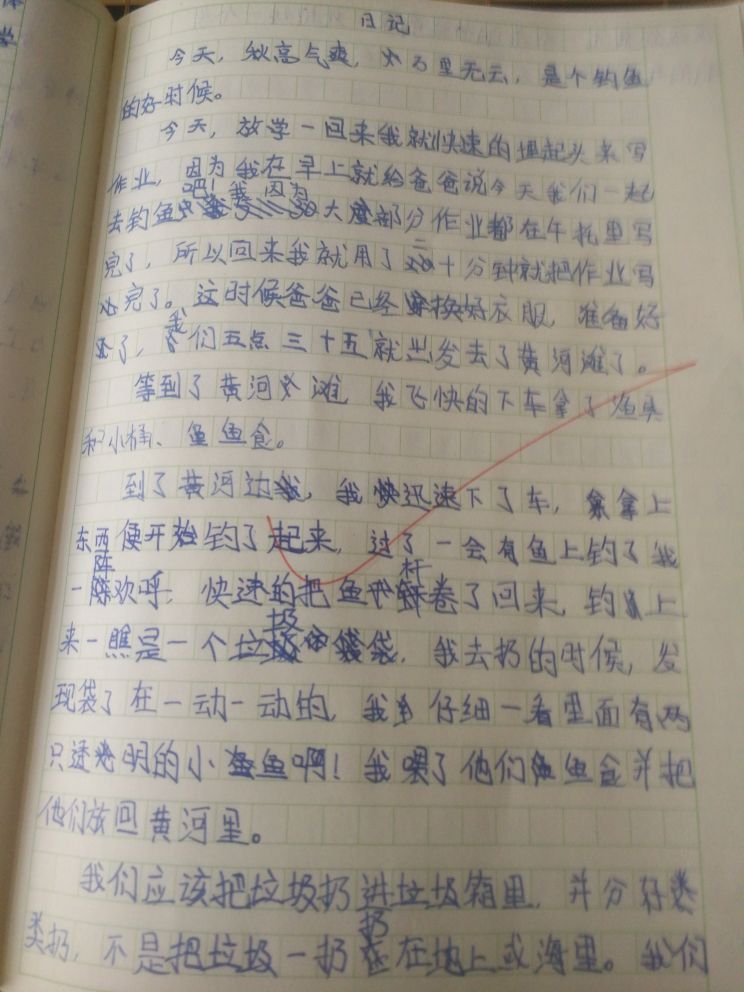 日记
今天，秋高气爽，万里无云，是个钓鱼
的好时候。
今天，放学一回来我就快速的埋起头来写
作业，因为我在早上就给爸爸说今天我们一起
去钓鱼吧！我因为大部分作业都在午托里写
完了，所以回来我就用了二十分钟就把作业写
完了。这时候爸爸已经换好衣服，准备好
了，我们五点三十五就出发去了黄河滩了。
等到了黄河滩，我飞快的下车拿了渔具
和小桶、鱼食。
到了黄河边，我快迅速下了车，拿上
东西便开始钓了起来，过了一会有鱼上钓了我
一阵欢呼，快速的把鱼杆卷了回来，钓上
来一瞧是一个垃圾袋，我去扔的时候，发
现袋了在一动一动的，我仔细一看里面有两
只透明的小鱼啊！我喂了他们鱼食并把
他们放回黄河里。
我们应该把垃圾扔进垃圾箱里，并分好
类扔，不是把垃圾一扔扔在地上或海里。我们